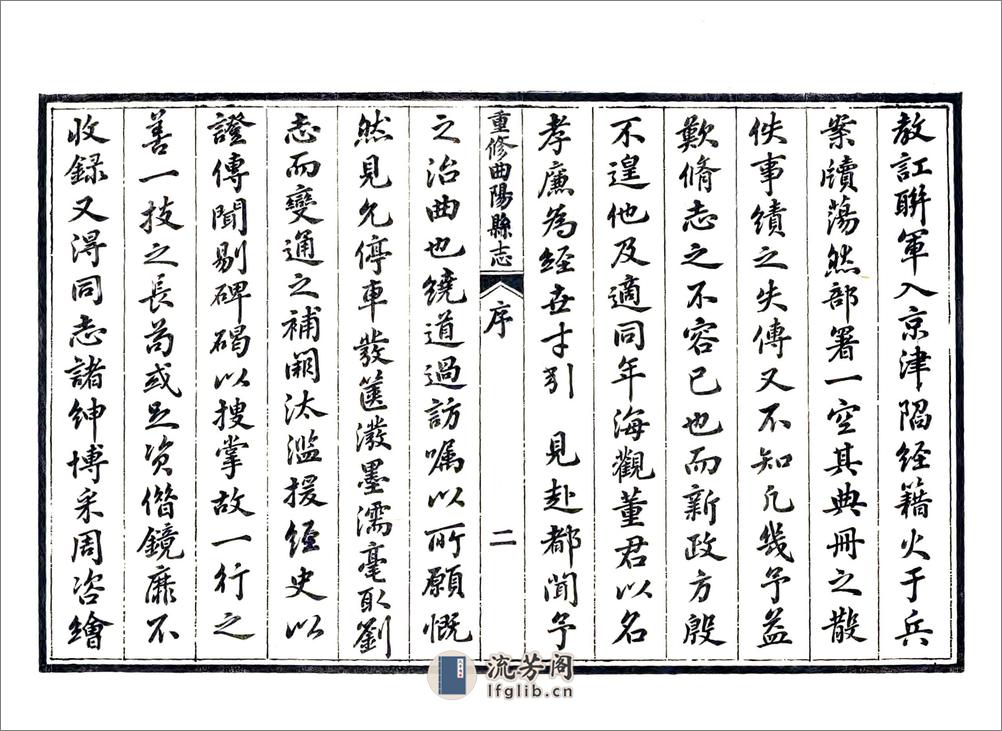 教訌聯軍入京津陷經籍火于兵
案牘蕩然部署一空其典冊之散
佚事績之失傳又不知凡幾予益
歎脩志之不容已也而新政方殷
不遑他及適同年海觀董君以名
孝廉為經世才引　見赴都聞予
重修曲陽縣志　序　二
之治曲也繞道過訪囑以所願慨
然見允停車發篋潑墨濡毫取劉
志而變通之補闕汰濫援經史以
證傳聞剔碑碣以搜掌故一行之
善一技之長苟或足資借鏡靡不
收録又得同志諸紳博采周咨繪
流芳阁
lfglib.cn